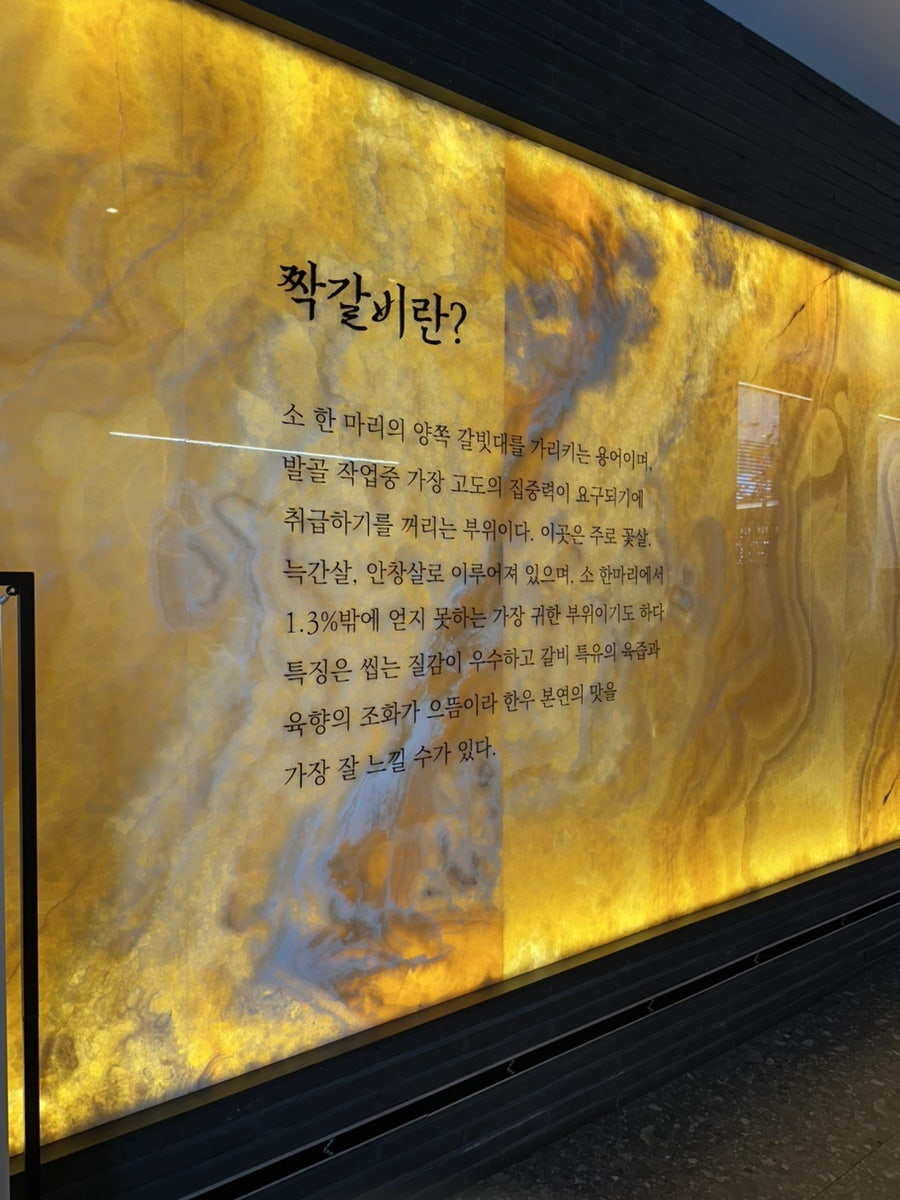 짝갈비란?
소 한 마리의 양쪽 갈빗대를 가리키는 용어이며,
발골 작업중 가장 고도의 집중력이 요구되기에
취급하기를 꺼리는 부위이다. 이곳은 주로 꽃살,
늑간살, 안창살로 이루어져 있으며, 소 한마리에서
1.3%밖에 얻지 못하는 가장 귀한 부위이기도 하다
특징은 씹는 질감이 우수하고 갈비 특유의 육즙과
육향의 조화가 으뜸이라 한우 본연의 맛을
가장 잘 느낄 수가 있다.